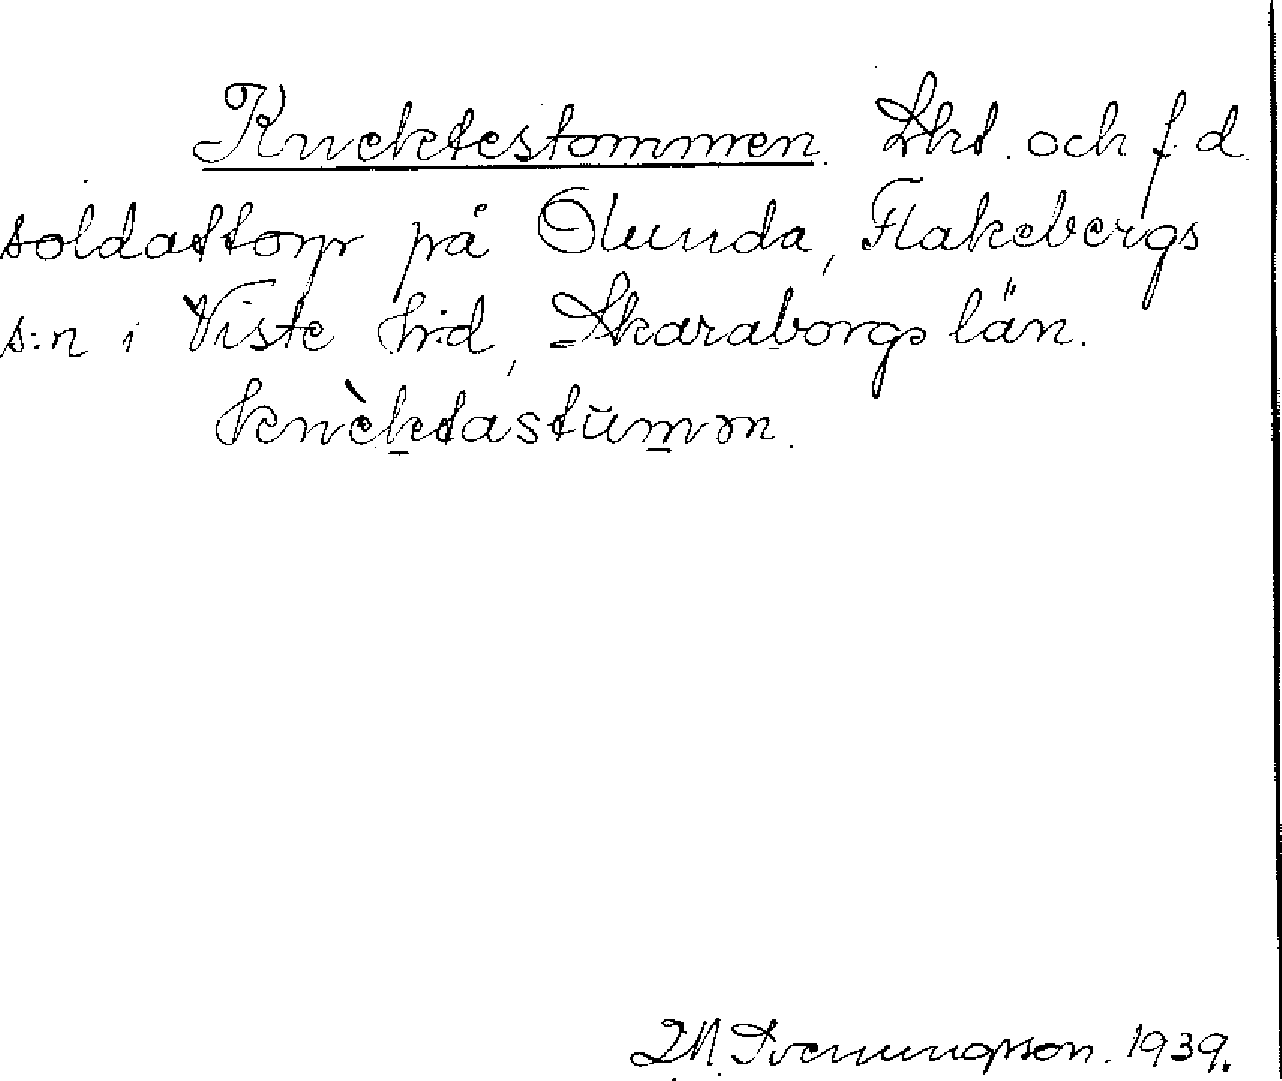 Knektestommen. Lht. och f.d.
soldattorp på Olunda, Flakebergs
s:n i Viste hd, Skaraborgs län.
knèktastŭmɷn.
M. Svenungsson. 1939.